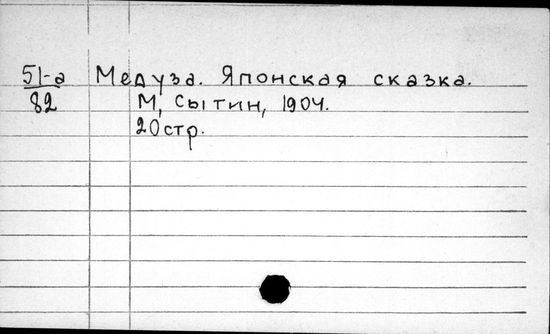 51-а Медуза. Японская сказка.
82 М, Сытин, 1904.
20стр.